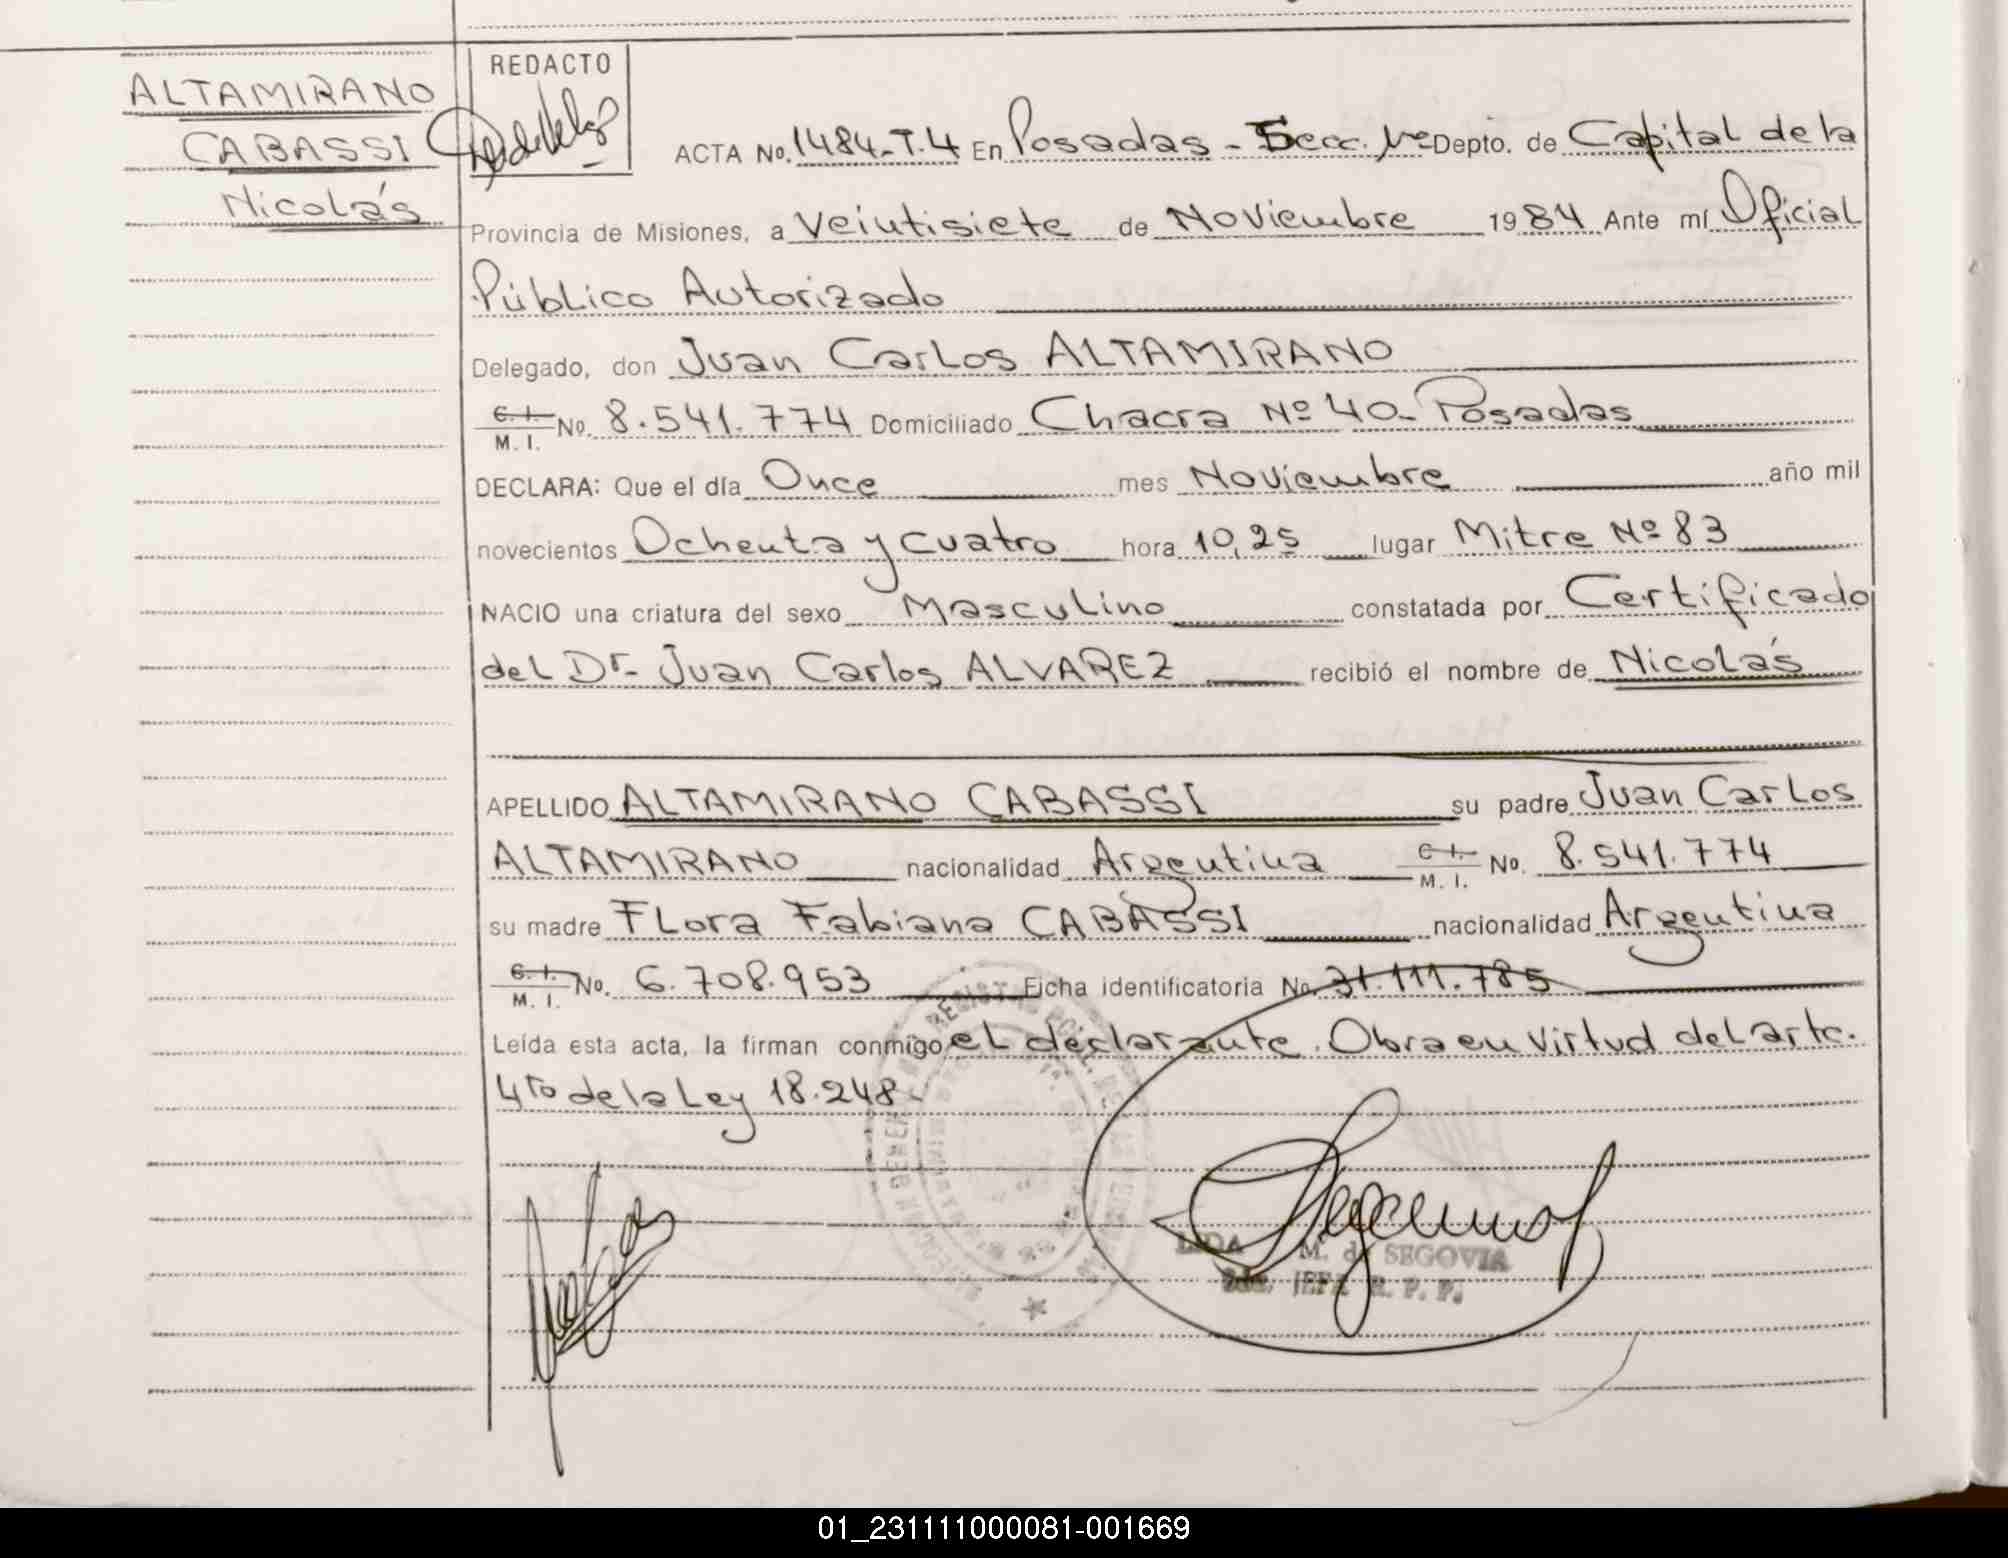 ALTAMIRANO
CABASSI
Nicolás
REDACTO
ACTA No. 1484-T.4 En Posadas - Secc. 1ra Depto. de Capital de la
Provincia de Misiones, a Veintisiete de Noviembre 1984 Ante mí Oficial
Público Autorizado
Delegado, don Juan Carlos ALTAMIRANO
C. I. / M. I. No. 8.541.774 Domiciliado Chacra Nº 40- Posadas
DECLARA: Que el día Once mes Noviembre año mil
novecientos Ochenta y cuatro hora 10,25 lugar Mitre Nº 83
NACIO una criatura del sexo Masculino constatada por Certificado
del Dr- Juan Carlos ALVAREZ recibió el nombre de Nicolás
APELLIDO ALTAMIRANO CABASSI su padre Juan Carlos
ALTAMIRANO nacionalidad Argentina C. I. / M. I. No. 8.541.774
su madre Flora Fabiana CABASSI nacionalidad Argentina
C. I. / M. I. No. 6.708.953 Ficha identificatoria No. 31.111.785
Leída esta acta, la firman conmigo el declarante. Obra en virtud del artc.
4to de la Ley 18.248
LIDA M. de SEGOVIA
JEFA R. P. P.
01_231111000081-001669